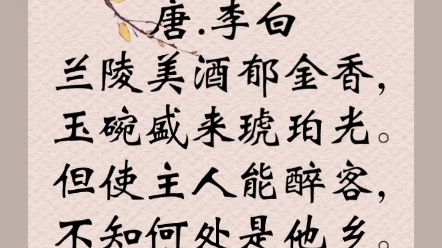 唐.李白
兰陵美酒郁金香，
玉碗盛来琥珀光。
但使主人能醉客，
不知何处是他乡。